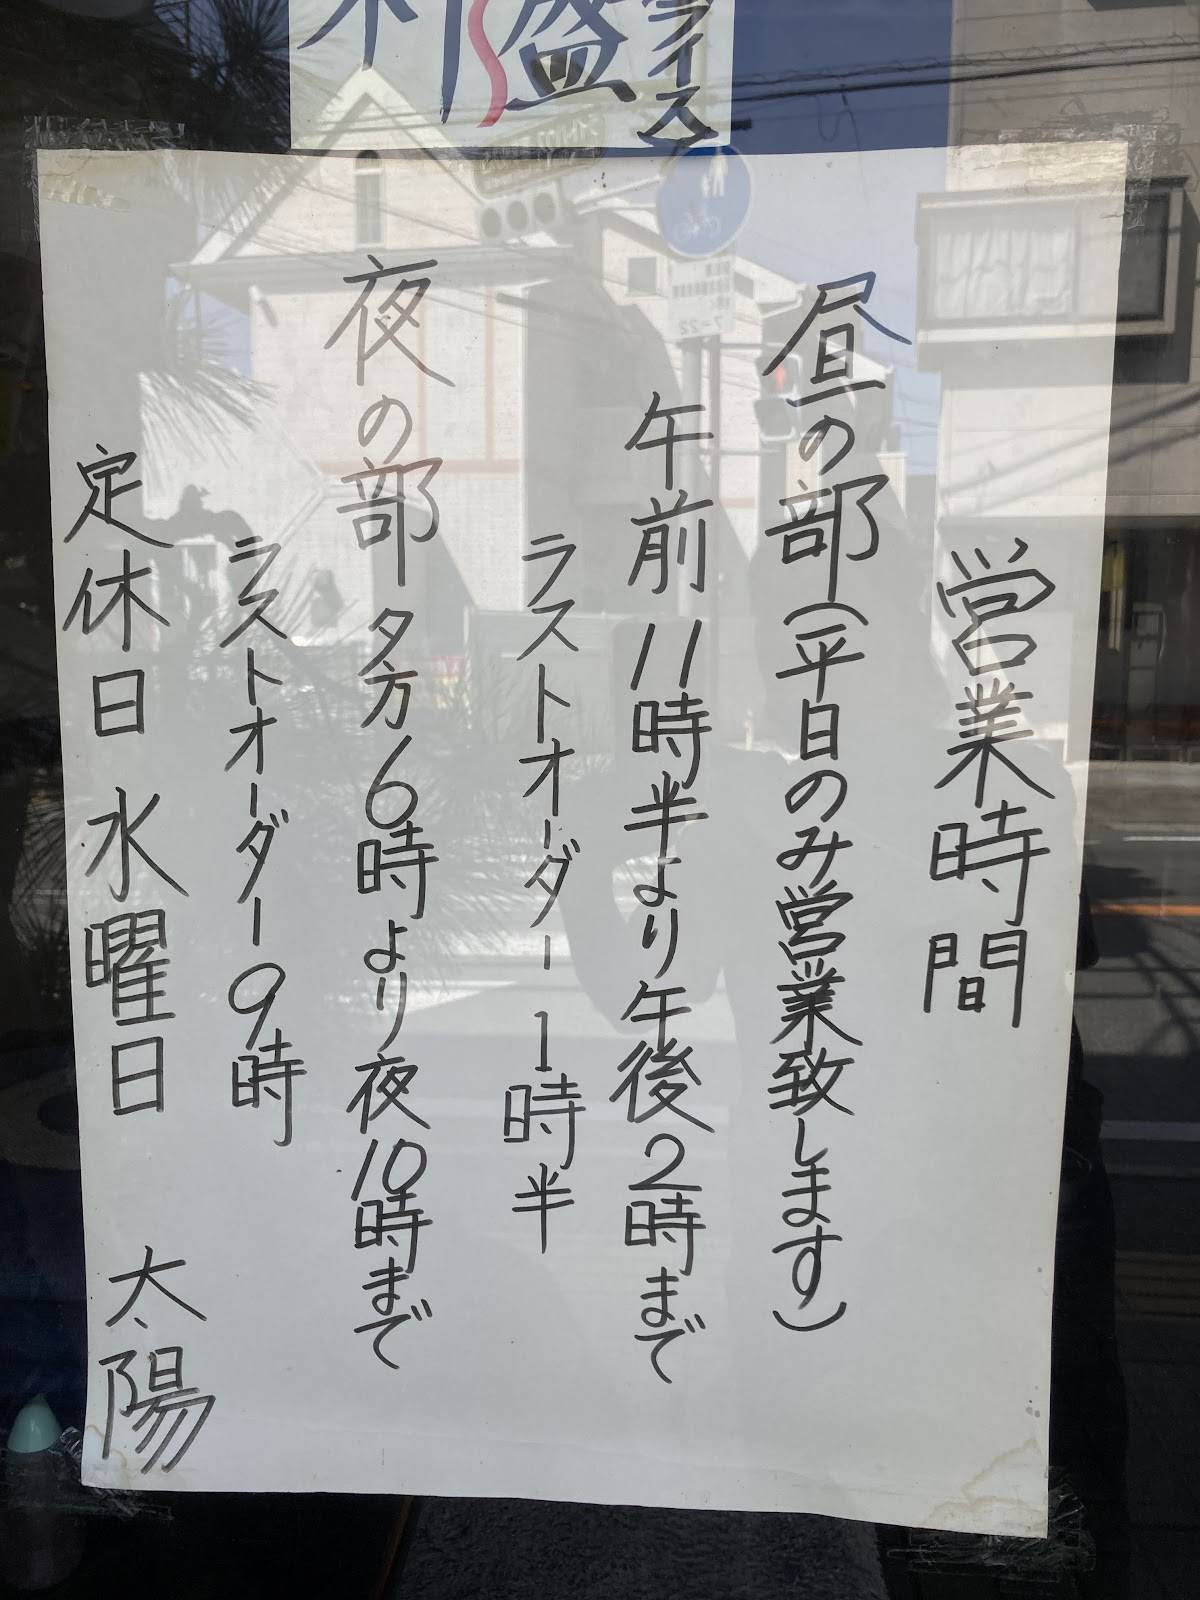 盛
ライス
営業時間
昼の部(平日のみ営業致します)
午前11時半より午後2時まで
ラストオーダー1時半
夜の部 夕方6時より夜10時まで
ラストオーダー9時
定休日 水曜日 太陽